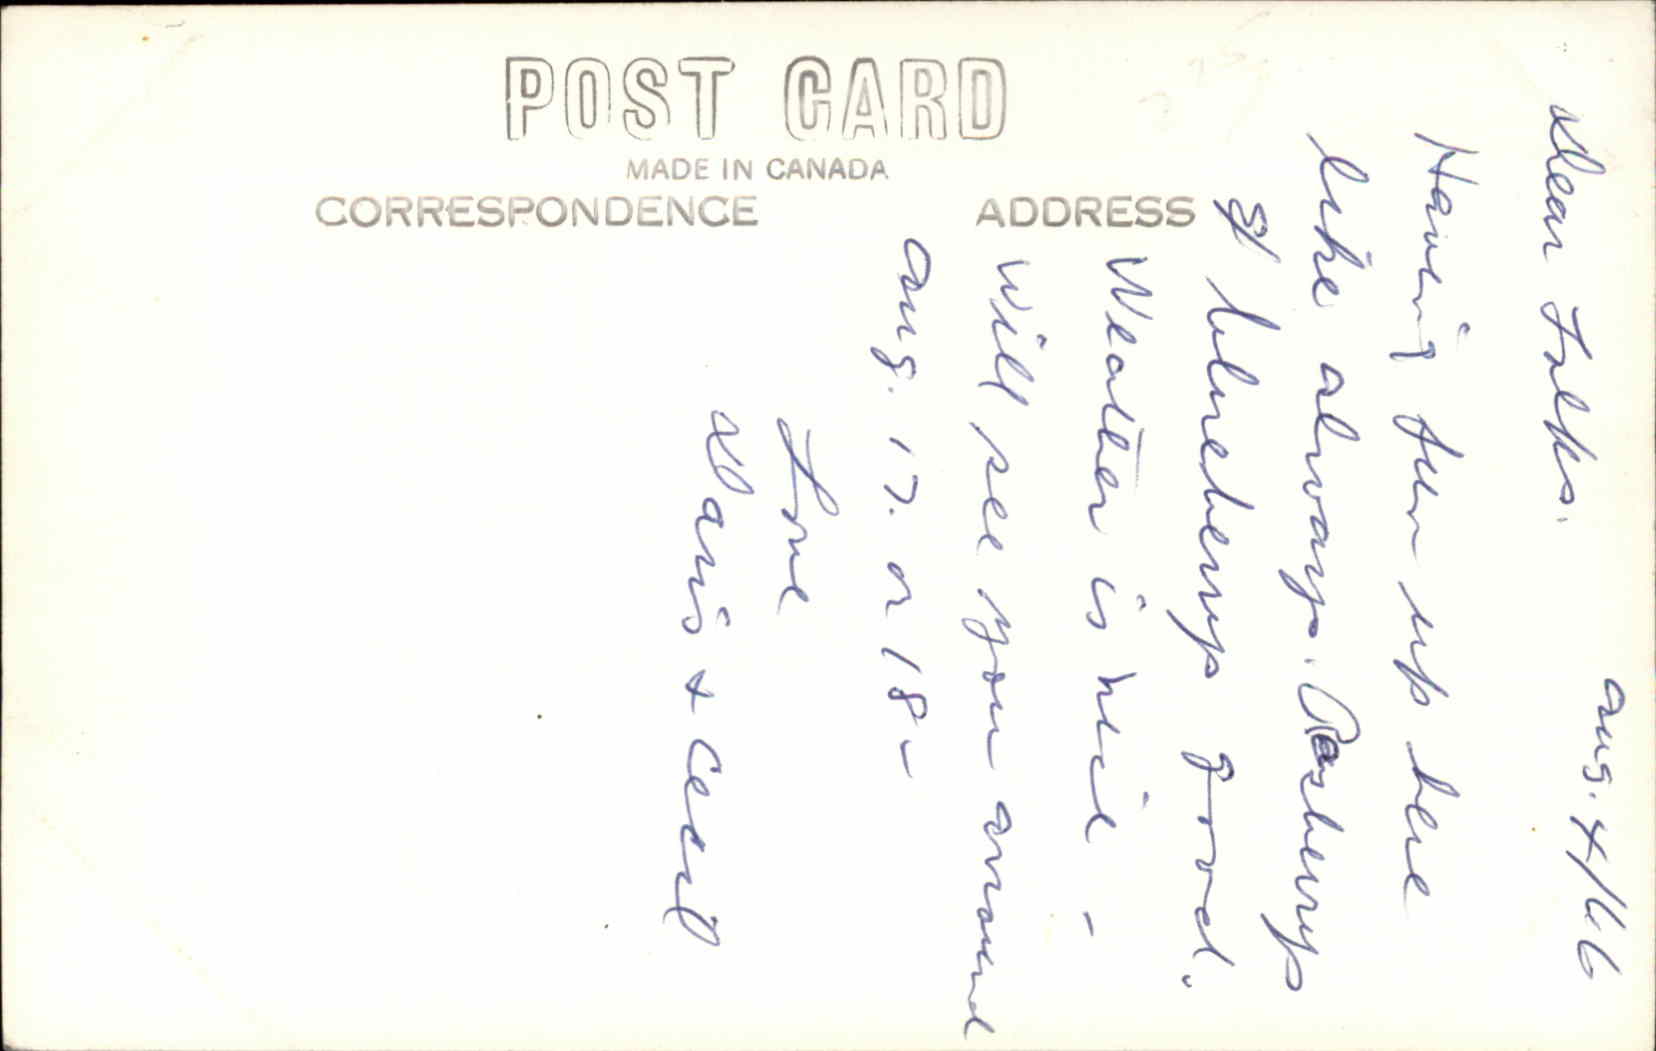 POST CARD
MADE IN CANADA
CORRESPONDENCE
ADDRESS
Aug. 4/66
Dear Folks.
Having fun up here
like always. Rasberrys
& blueberrys good.
Weather is nice -
Will see you around
Aug. 17. or 18 -
Love
& Cecil